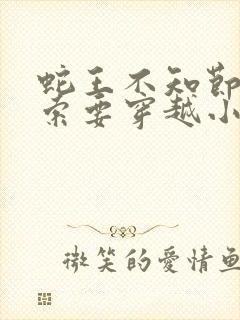 蛇王不知节
索要穿越小
微笑的爱情鱼